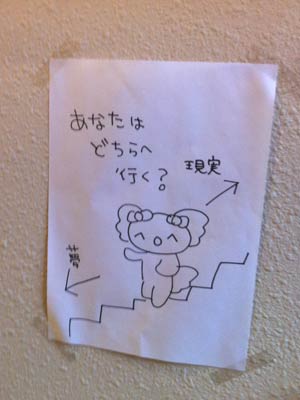 あなたは
どちらへ
行く?
現実
夢